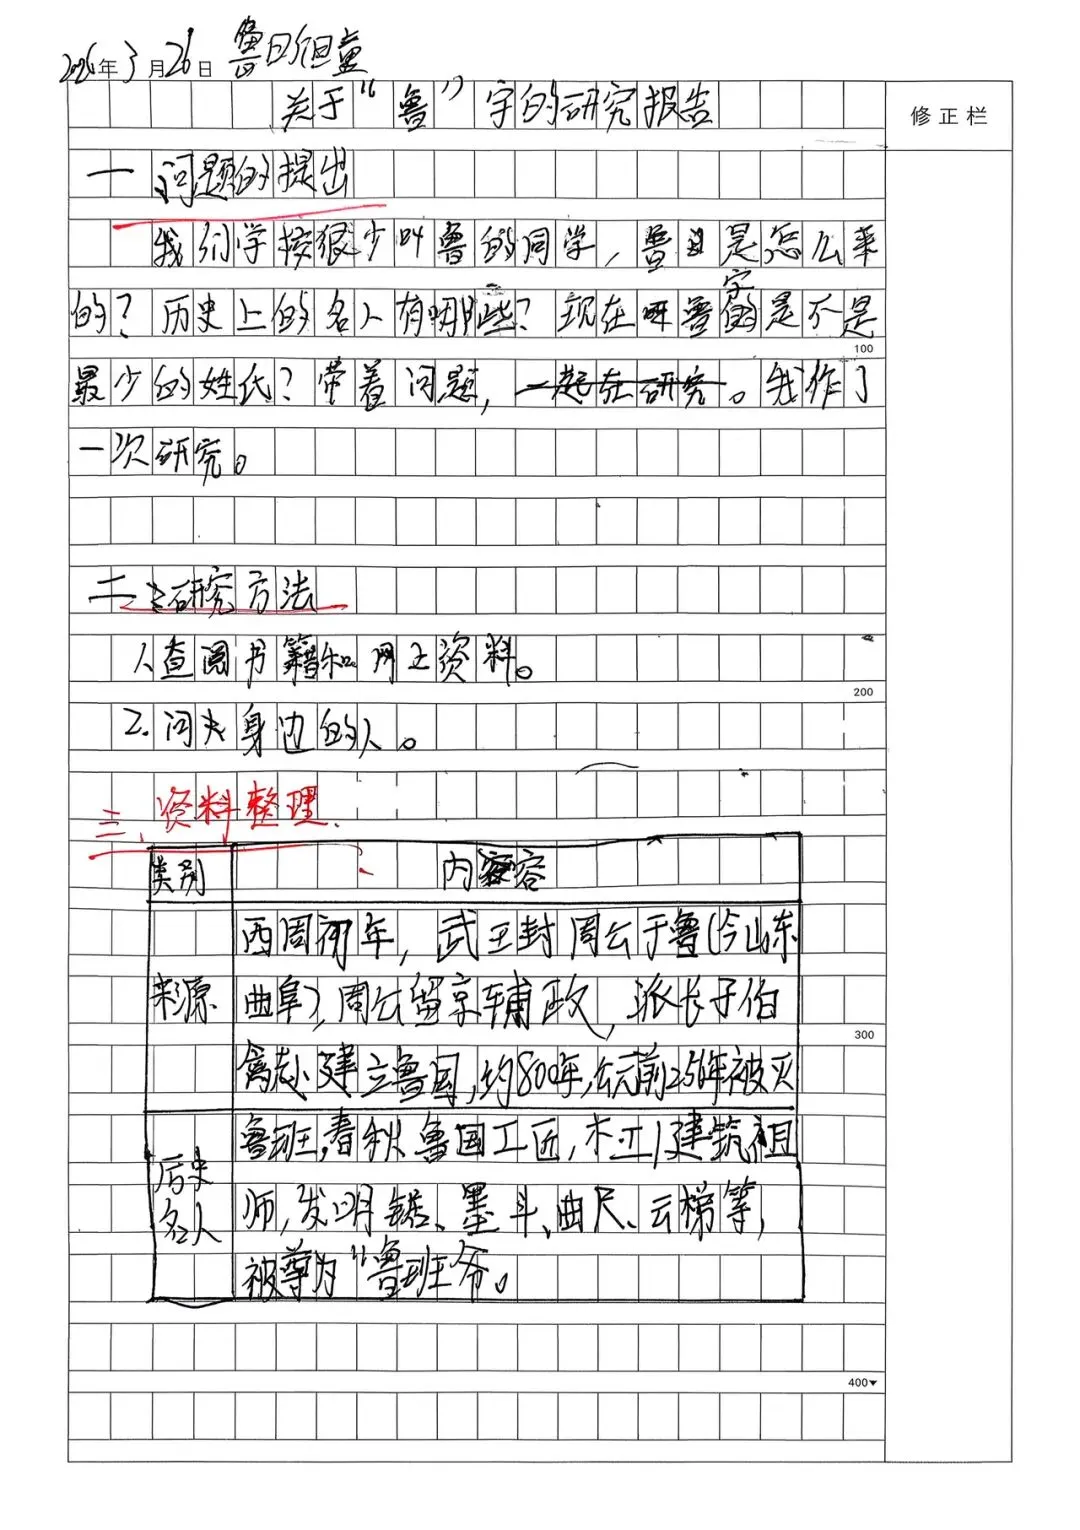 2026年3月26日 鲁日恒童
关于“鲁”字的研究报告
修正栏
一、问题的提出
我们学校很少叫鲁的同学，鲁是怎么来
的？历史上的名人有哪些？现在叫鲁字的是不是
100
最少的姓氏？带着问题，一起在研究。我作了
一次研究。
二、研究方法
1、查阅书籍和网上资料。
200
2.问夫身边的人。
三、资料整理、
类别 内容
来源 西周初年，武王封周公于鲁（今山东
曲阜），周公留京辅政，派长子伯
300
禽赴建立鲁国，约800年，公元前256年被灭
历史名人 鲁班，春秋鲁国工匠，木工/建筑祖
师，发明锯、墨斗、曲尺、云梯等，
被尊为“鲁班爷。
400